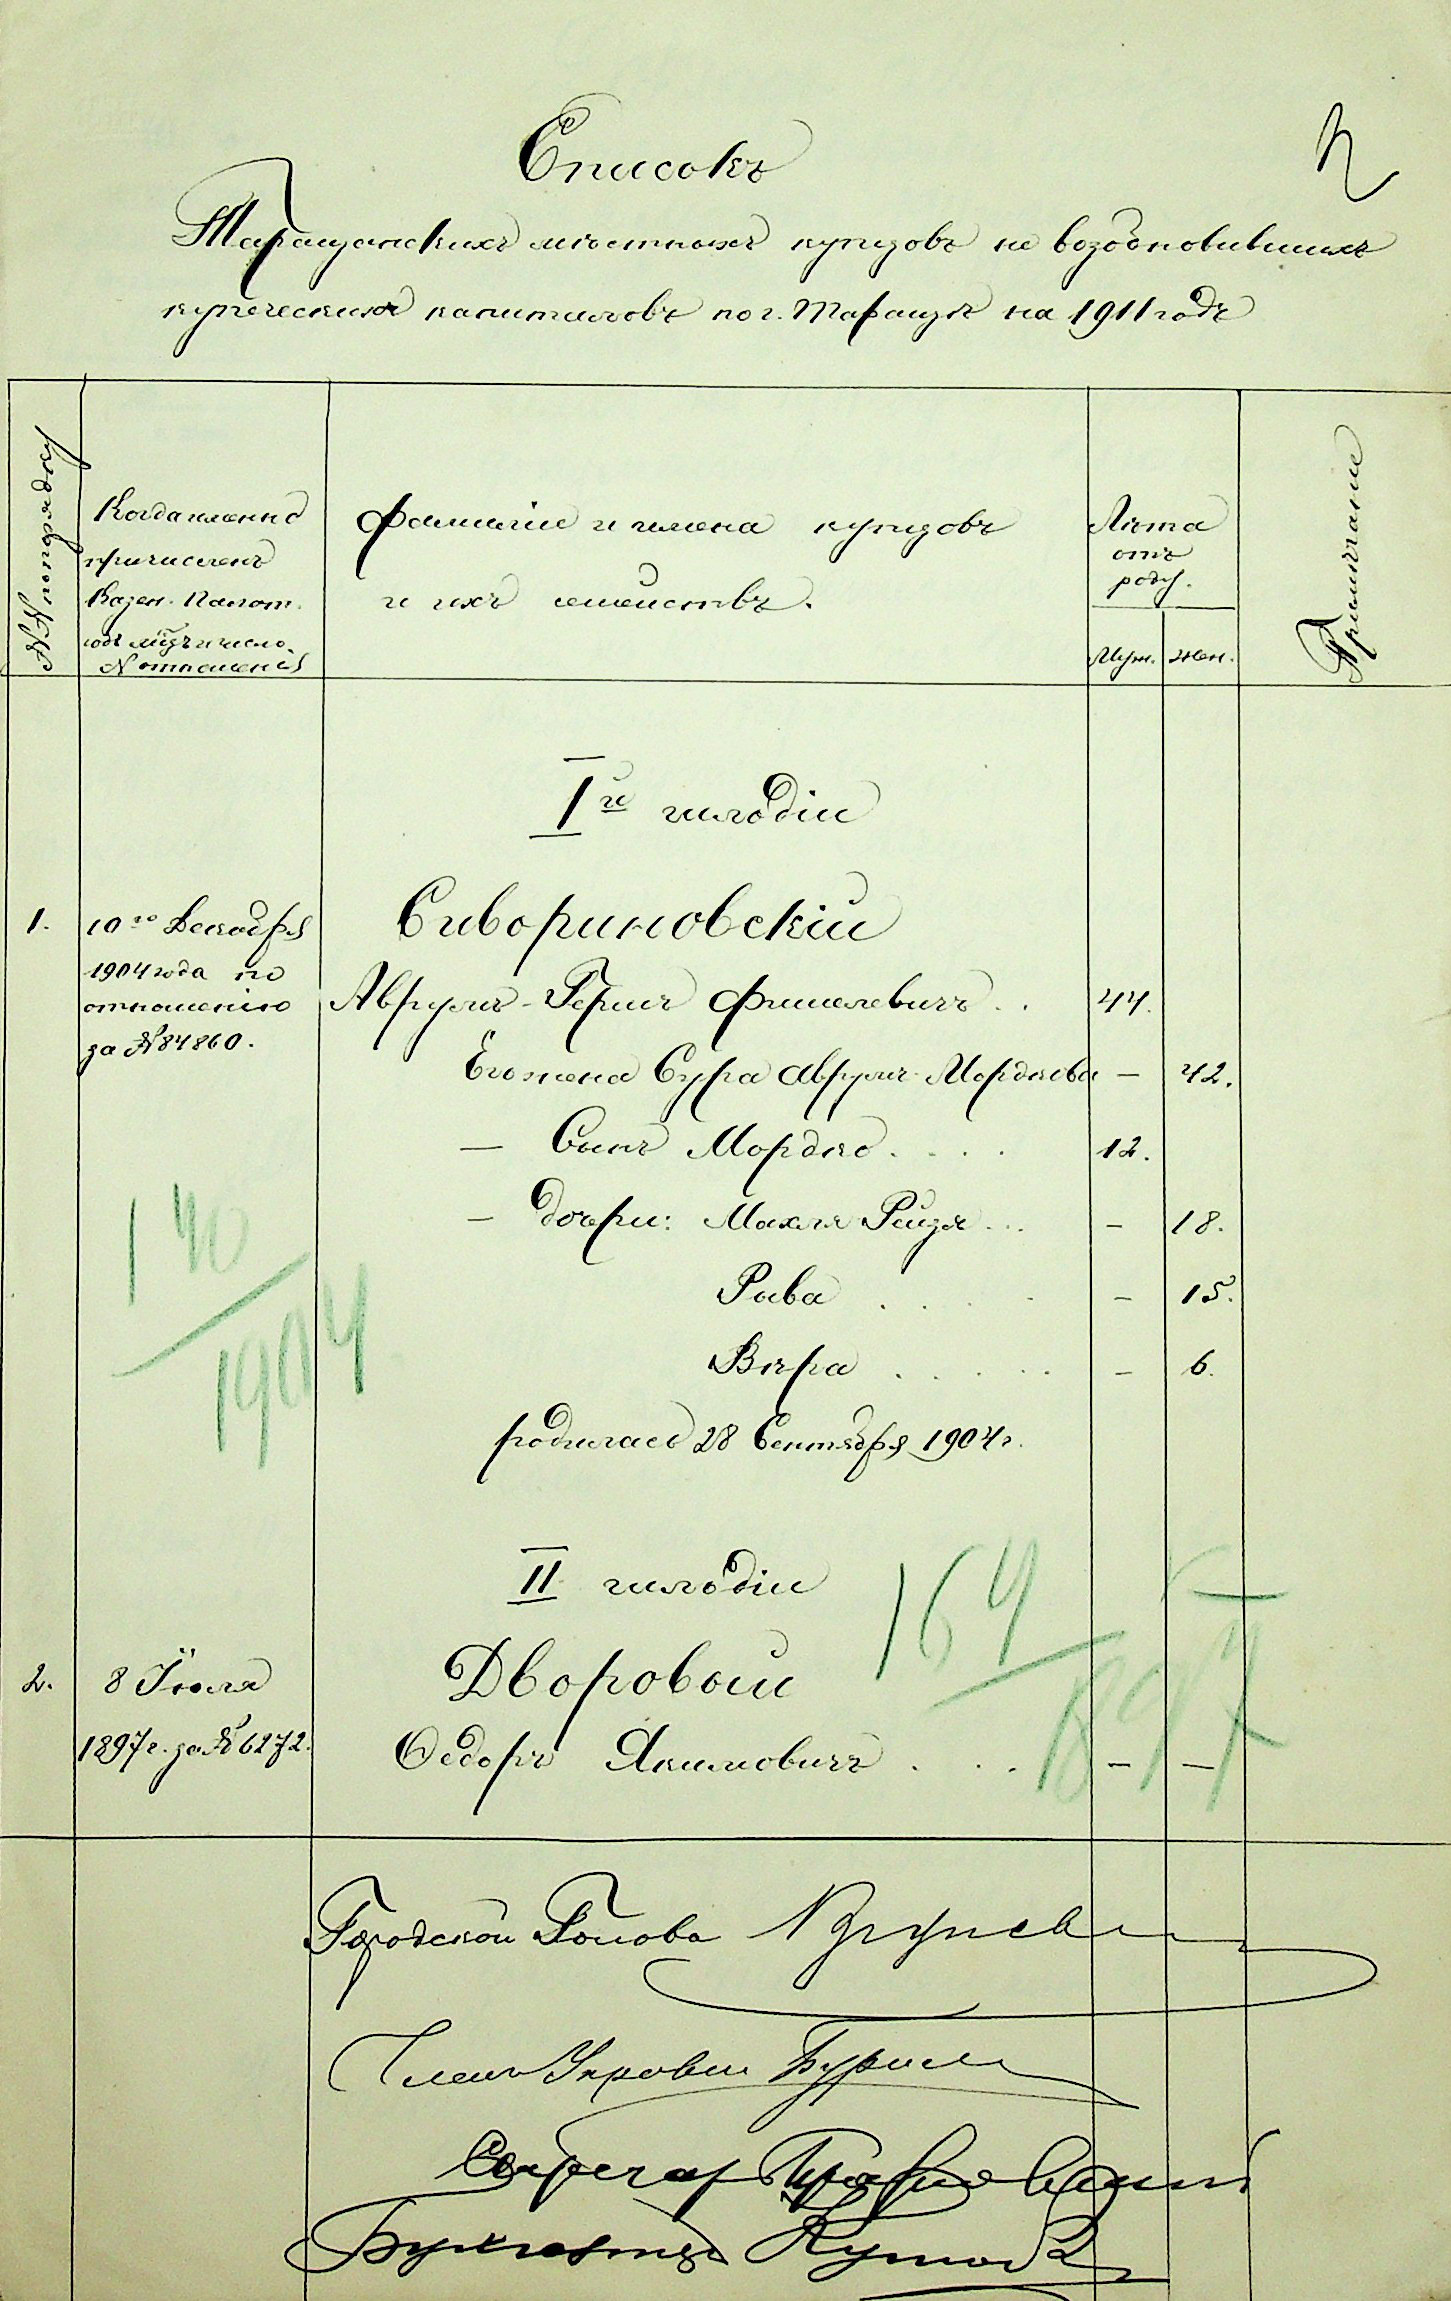 Списокъ
Таращанскихъ мѣстныхъ купцовъ не возобновившихъ
купеческихъ капиталовъ по г. Таращѣ на 1911 годъ
№№ по порядку
Когда именно
причисленъ
Казен. Палат.
годъ мѣсяцъ и число
№ отношенія
Фамиліи и имена купцовъ
и ихъ семействъ.
Лѣта
отъ
роду.
Муж. Жен.
Примѣчаніе
Iй гильдіи
1. 10го Декабря
1904 года по
отношенію
за №84860.
Сивориновскій
Аврумъ-Гершъ Фишелевичъ . . 44.
Его жена Сура Аврумъ-Мордкова — 42.
— Сынъ Мордко . . . . 12.
— дочери: Махля Рейзя . . . — 18.
Рива . . . . — 15.
Вѣра . . . . . — 6.
родилась 28 Сентября 1904 г.
140
1904
II гильдіи
164
1897
2. 8 Іюля
1897 г. за №6272.
Дворовый
Федоръ Якимовичъ . . . — —
Городской Голова
Членъ Управы
Секретарь
Бухгалтеръ